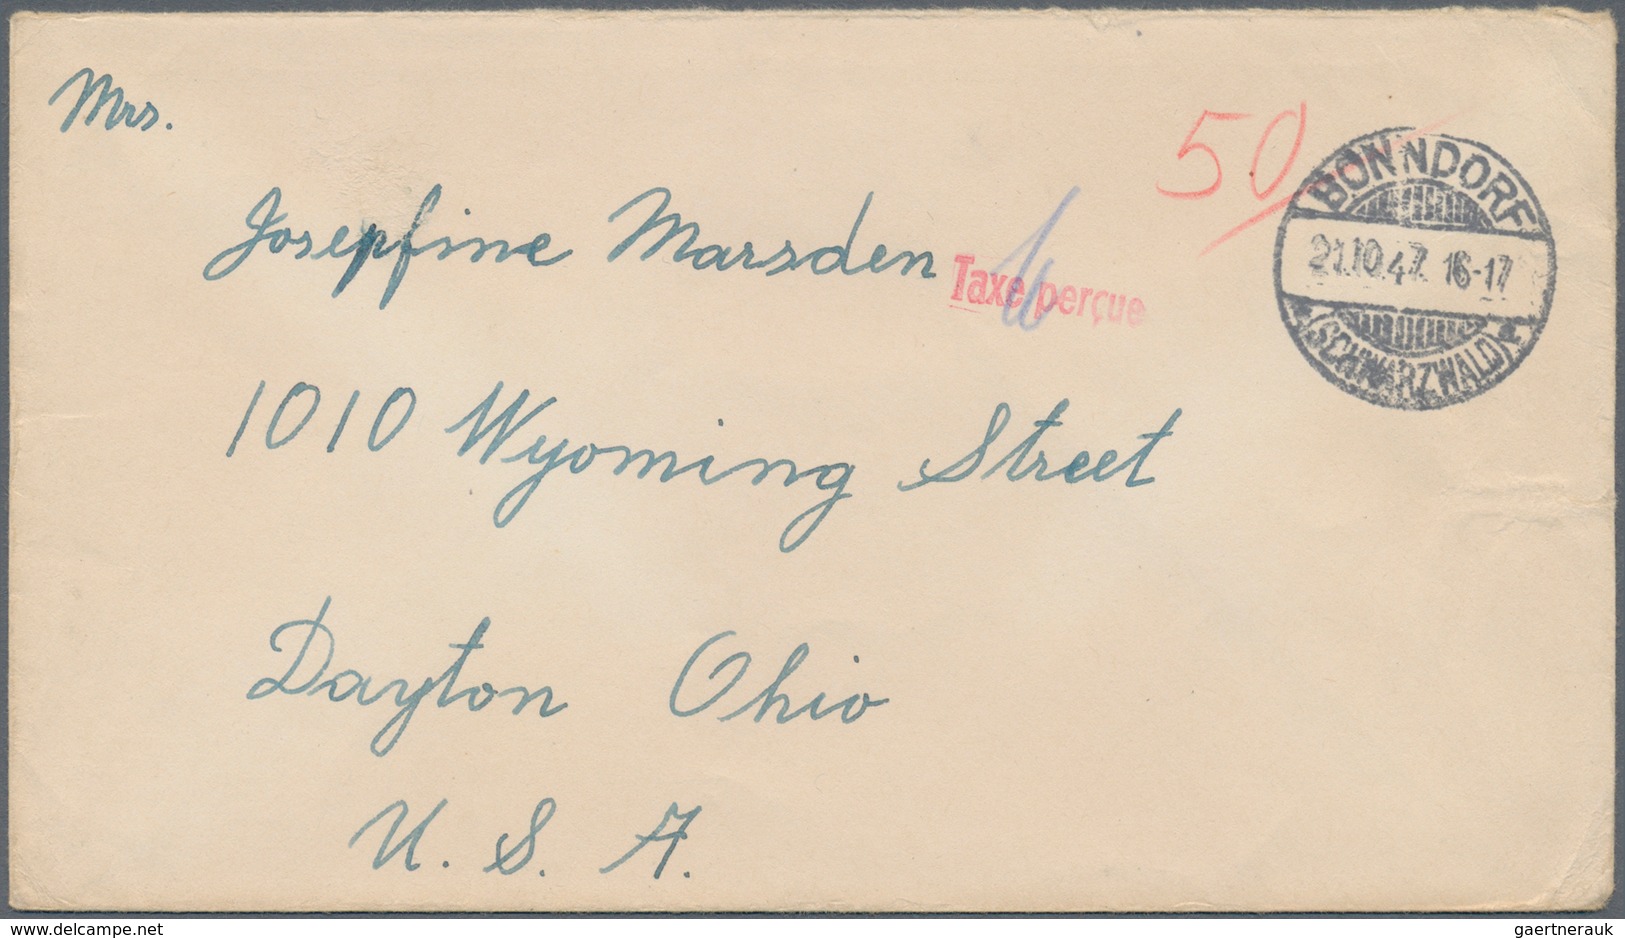 Mrs.
50
BONNDORF
21.10.47. 16-17
(SCHWARZWALD)
Josepfine Marsden
Taxe perçue
1010 Wyoming Street
Dayton Ohio
U. S. A.
www.delcampe.net
gaertnerauk